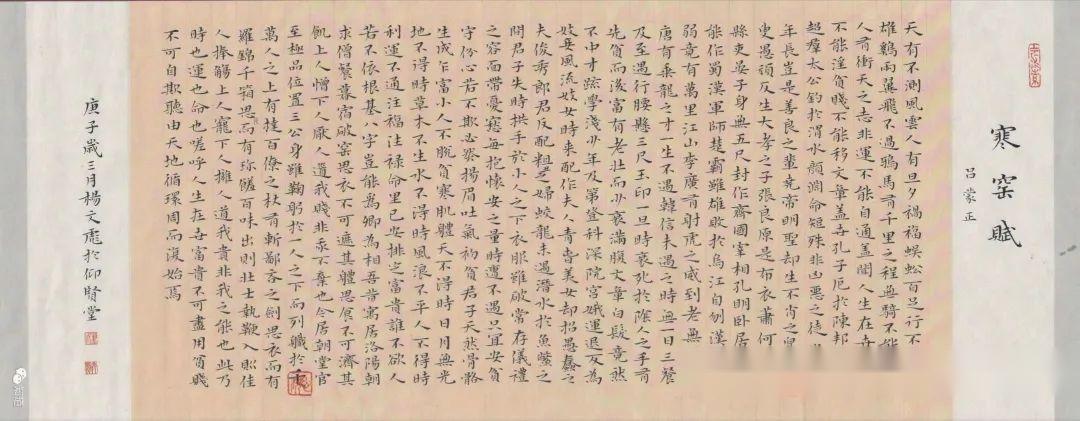 寒窑賦
吕蒙正
天有不測風雲人有旦夕禍福蜈蚣百足行不
雄鷄兩翼飛不過鴉馬有千里之程無騎不能
人有衝天之志非運不能自通蓋聞人生在世
不能淫貧賤不能移文章盖世孔子厄於陳邦
超羣太公釣於渭水顔淵命短殊非凶惡之徒
年長豈是善良之輩堯帝明聖却生不肖之
叟愚頑反生大孝之子張良原是布衣蕭何
縣吏晏子身無五尺封作齊國宰相孔明卧居
能作蜀漢軍師楚霸雖雄敗於烏江自刎漢
弱竟有萬里江山李廣有射虎之威到老無
唐有乘龍之才一生不遇韓信未遇之時無一日三餐
及至遇行腰懸三尺玉印一旦時衰死於陰人之手有
先貧而後富有老壯而少衰滿腹文章白髮竟然
不中才疏學淺少年及第登科深院宮娥運退反為
妓妾風流妓女時來配作夫人青春美女却招愚蠢之
夫俊秀郎君反配粗醜之婦蛟龍未遇潛水於魚鱉之
間君子失時拱手於小人之下衣服雖破常存儀禮
之容面帶憂愁每抱懷安之量時遭不遇只宜安貧
守份心若不欺必然揚眉吐氣初貧君子天然骨骼
生成乍富小人不脱貧寒肌體天不得時日月無光
地不得時草木不生水不得時風浪不平人不得時
利運不通注福注禄命里已安排定富貴誰不欲人
若不依根基八字豈能為卿為相吾昔寓居洛陽朝
求僧餐暮宿破窑思衣不可遮其體思食不可濟其
飢上人憎下人厭人道我賤非我不棄也今居朝堂官
至極品位置三公身雖鞠躬於一人之下而列職於千
萬人之上有撻百僚之杖有斬鄙吝之劍思衣而有
羅錦千箱思食而有珍饈百味出則壯士執鞭入則佳
人捧觴上人寵下人擁人道我貴非我之能也此乃
時也運也命也嗟呼人生在世富貴不可盡用貧賤
不可自欺聽由天地循環周而復始焉
庚子歲三月楊文彪於仰賢堂